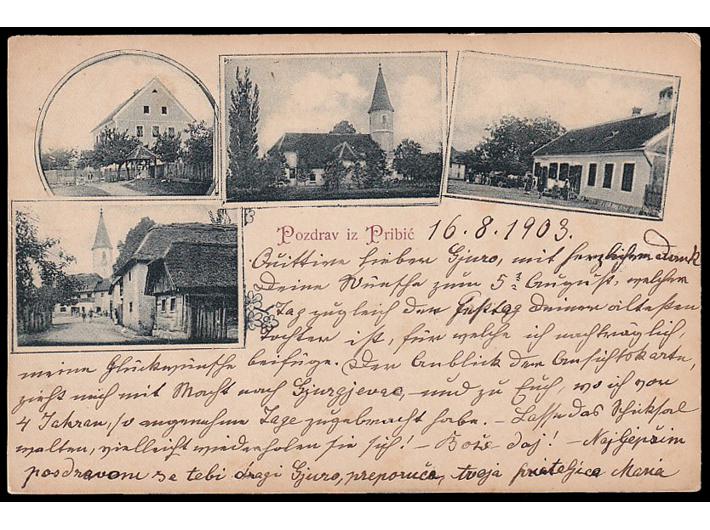 Pozdrav iz Pribić 16.8.1903.
Quittire lieber Gjuro, mit herzlichem dank
Deine Wünsche zum 5. August, welcher
Tag zugleich der Festtag Deiner ältesten
Tochter ist, für welche ich nachträglich,
meine Glückwünsche beifüge. Der Anblick der Ansichtskarte,
zieht mich mit Macht nach Gjurgjevac, und zu Euch, wo ich vor
4 Jahren, so angenehme Tage zugebracht habe. - Lasse das Schicksal
walten, vielleicht wiederholen sie sich! - Bože daj! - Najljepšim
pozdravom se tebi dragi Gjuro, preporuča, tvoja prateljica Maria